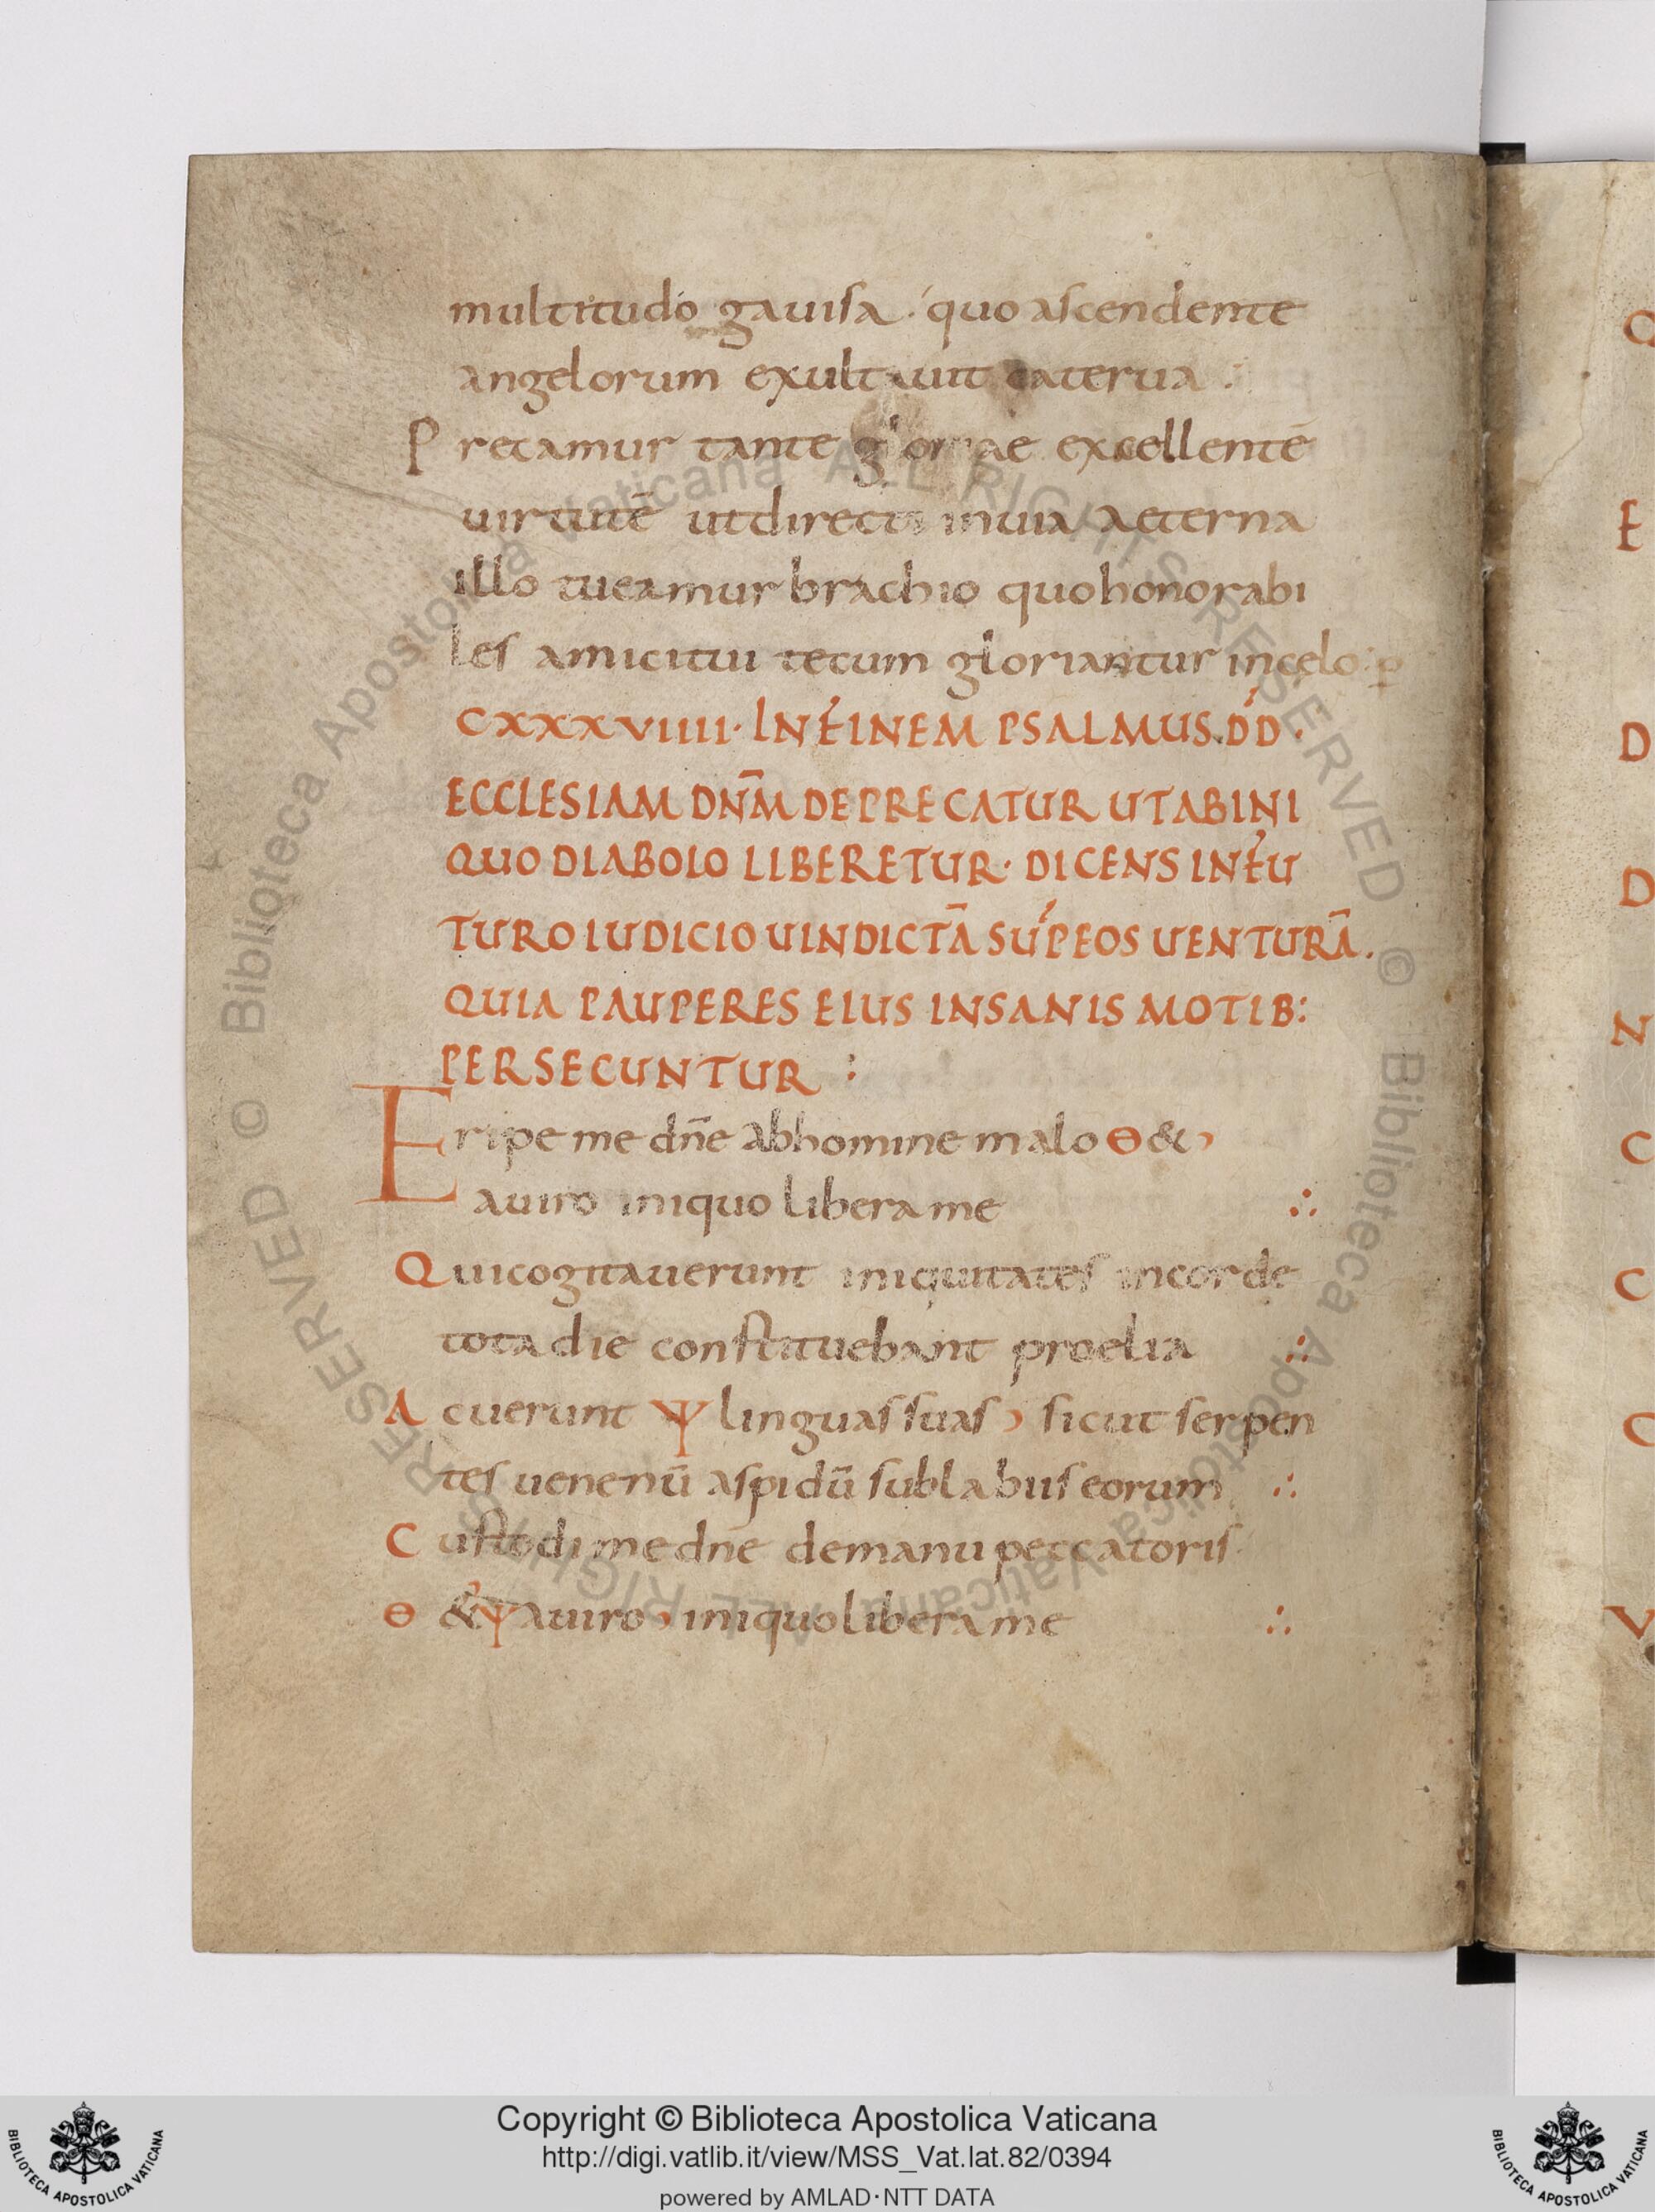 multitudo gauisa. quo ascendente
angelorum exultauit caterua.
Precamur tante gloriae excellentē
uirtutē utdirecti inuia aeterna
illo tueamur brachio quo honorabi
les amici tui tecum gloriantur incelo: p
CXXXVIIII. IN FINEM PSALMUS. DD.
ECCLESIAM DN̄M DEPRECATUR UT AB INI
QUO DIABOLO LIBERETUR. DICENS IN FU
TURO IUDICIO UINDICTĀ SUPEOS UENTURĀ.
QUIA PAUPERES EIUS INSANIS MOTIB:
PERSECUNTUR :
Eripe me dn̄e abhomine malo Θ &
auiro iniquo libera me ∴
Qui cogitauerunt iniquitates incorde
tota die constituebant proelia ∴
Acuerunt Ψ linguas suas, sicut serpen
tes uenenū aspidū sublabiis eorum ∴
Custodi me dn̄e demanu peccatoris
Θ & Ψ auiro, iniquo libera me ∴
Q
E
D
D
N
C
C
C
V
© Biblioteca Apostolica Vaticana ALL RIGHTS RESERVED
© Biblioteca Apostolica Vaticana ALL RIGHTS RESERVED
BIBLIOTECA APOSTOLICA VATICANA
Copyright © Biblioteca Apostolica Vaticana
http://digi.vatlib.it/view/MSS_Vat.lat.82/0394
powered by AMLAD·NTT DATA
BIBLIOTECA APOSTOLICA VATICANA